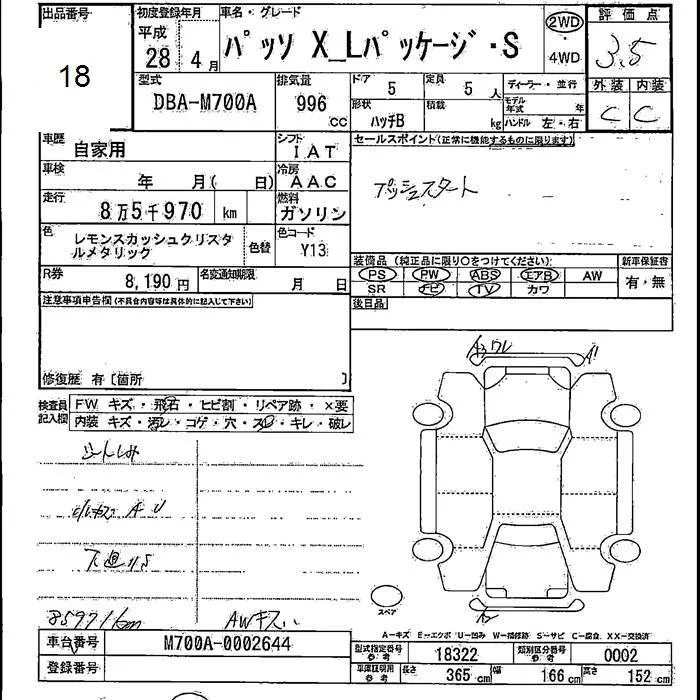 出品番号
18
初度登録年月
平成
28年 4月
車名・グレード
パッソ X_Lパッケージ・S
2WD
4WD
評価点
3.5
外装 内装
C C
型式
DBA-M700A
排気量
996 CC
ドア 5
定員 5人
形状 ハッチB
積載 kg
ディーラー・並行
モデル年式 年
ハンドル 左・右
車歴 自家用
シフト IAT
車検 年 月( 日)
冷房 AAC
走行 8万5千970 km
燃料 ガソリン
色 レモンスカッシュクリスタルメタリック
色替
色コード Y13
R券 8,190円
名変通知期限 月 日
セールスポイント(正常に機能するものに限ります)
プッシュスタート
装備品 (純正品に限り○をつけてください)
PS PW ABS エアB AW
SR ナビ TV カワ
新車保証書
有・無
後日品
注意事項申告欄(不具合内容等は具体的に記入して下さい)
修復歴 有〔箇所 〕
検査員記入欄
FW キズ・飛石・ヒビ割・リペア跡・×要
内装 キズ・汚レ・コゲ・穴・スレ・キレ・破レ
シートしみ
A U
下廻りS
85971km
AWキズ
A3 ワレ
A1
A2
スペア
A-キズ E-エクボ U-凹み W-補修跡 S-サビ C-腐食 XX-交換済
車台番号 M700A-0002644
登録番号
型式指定番号 参考 18322
類別区分番号 参考 0002
車庫証明用 参考
長さ 365 cm 幅 166 cm 高さ 152 cm